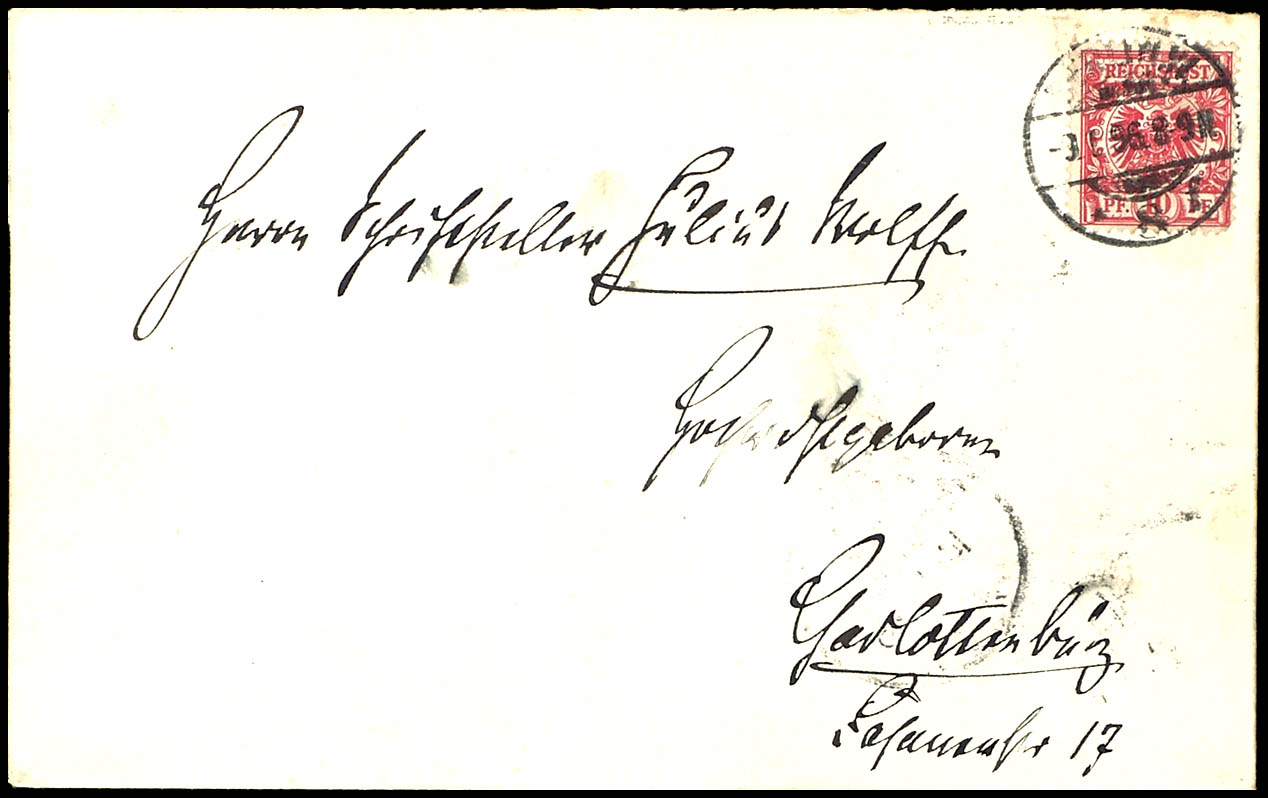 REICHSPOST
96. 8-9N
PF. 10 PF.
Herrn Schriftsteller Julius Wolff.
Hochwohlgeboren
Charlottenburg
Fasanenstr 17